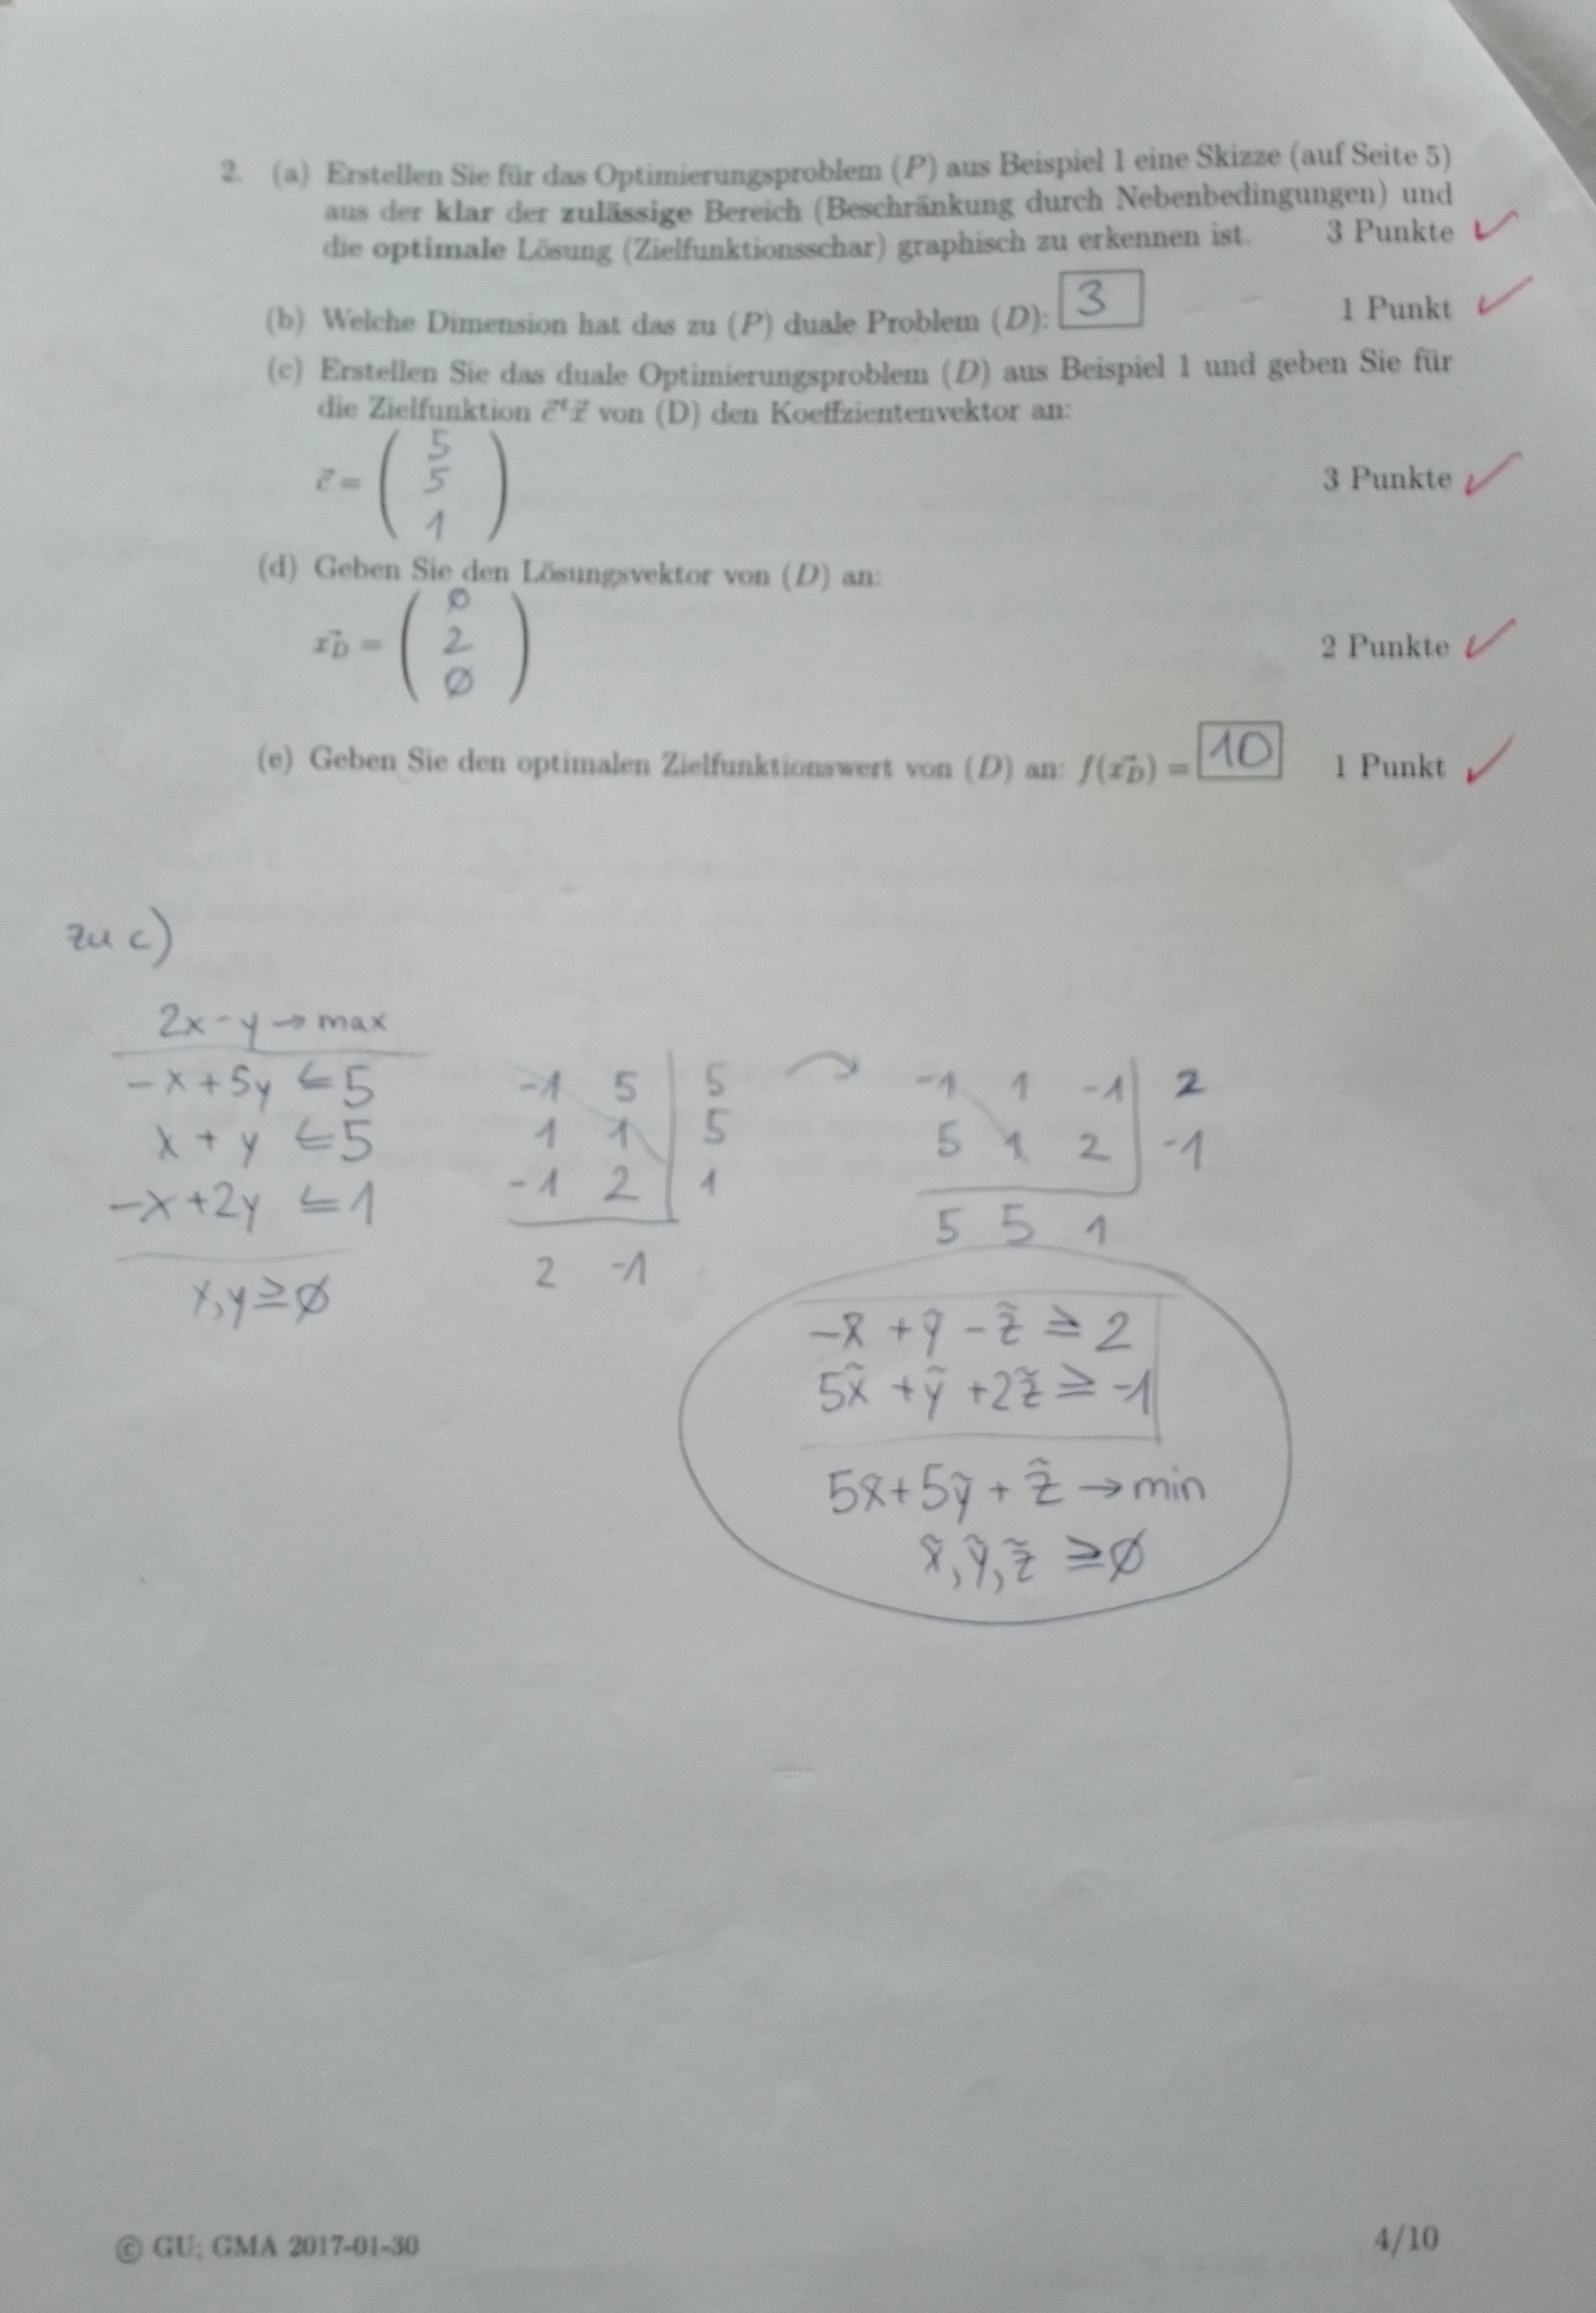 2. (a) Erstellen Sie für das Optimierungsproblem (P) aus Beispiel 1 eine Skizze (auf Seite 5)
aus der klar der zulässige Bereich (Beschränkung durch Nebenbedingungen) und
die optimale Lösung (Zielfunktionsschar) graphisch zu erkennen ist. 3 Punkte ✓
(b) Welche Dimension hat das zu (P) duale Problem (D): 3 1 Punkt ✓
(c) Erstellen Sie das duale Optimierungsproblem (D) aus Beispiel 1 und geben Sie für
die Zielfunktion c⃗ᵗx⃗ von (D) den Koeffzientenvektor an:
5
c⃗ = ( 5 ) 3 Punkte ✓
1
(d) Geben Sie den Lösungsvektor von (D) an:
∅
x⃗_D = ( 2 ) 2 Punkte ✓
∅
(e) Geben Sie den optimalen Zielfunktionswert von (D) an: f(x⃗_D) = 10 1 Punkt ✓
zu c)
2x - y → max
-x + 5y ≤ 5
x + y ≤ 5
-x + 2y ≤ 1
x, y ≥ ∅
-1 5 | 5
1 1 | 5
-1 2 | 1
2 -1
-1 1 -1 | 2
5 1 2 | -1
5 5 1
-x̃ + ỹ - z̃ ≥ 2
5x̃ + ỹ + 2z̃ ≥ -1
5x̃ + 5ỹ + z̃ → min
x̃, ỹ, z̃ ≥ ∅
© GU; GMA 2017-01-30 4/10